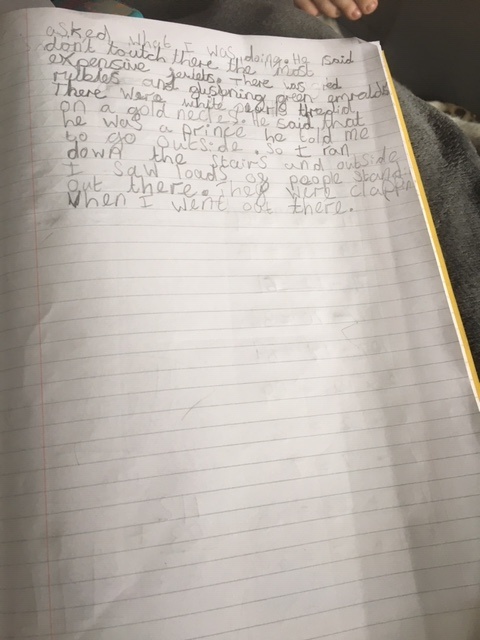 asked what I was doing. He said
dont toutch there the most
expensive jewels. There was red
rubles and glishning green emralds
There were white pearls thredid
on a gold necles. He said that
he was a prince he told me
to go outside. So I ran
down the stairs and outside
I saw loads of people
out there. They were
when I went out there.